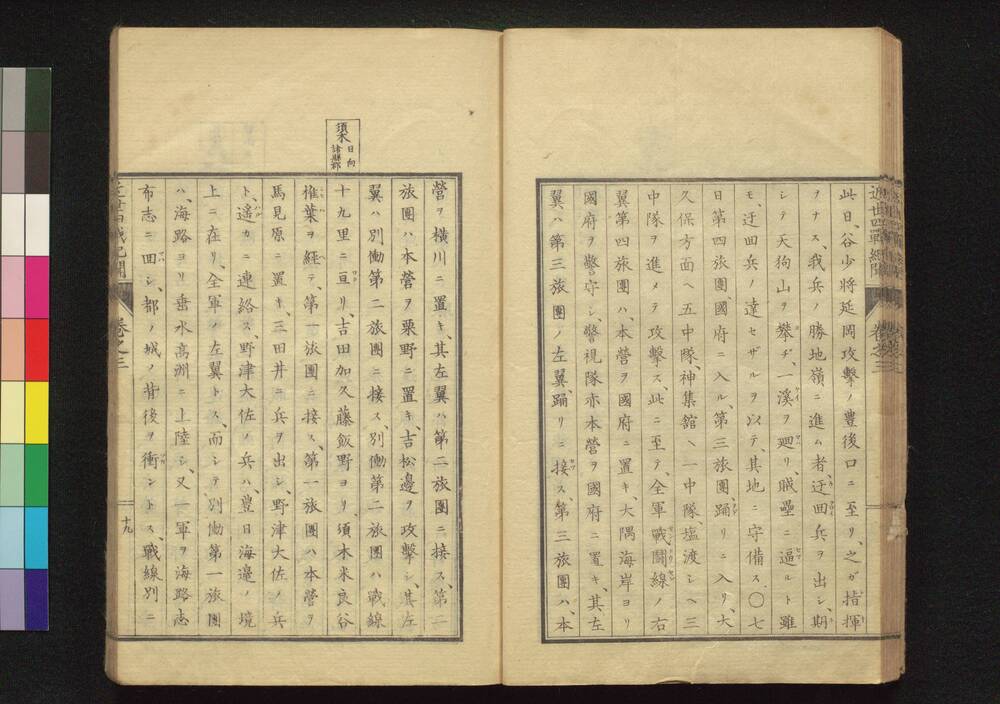 此日、谷少将延岡攻撃ノ豊後口ニ至リ、之ガ指揮
ヲナス、我兵ノ勝地嶺ニ進ム者、迂回兵ヲ出シ、期
シテ天狗山ヲ攀ヂ、一溪ヲ廻リ、賊壘ニ逼ルト雖
モ、迂回兵ノ達セザルヲ以テ、其地ニ守備ス、〇七
日第四旅團、國府ニ入ル、第三旅團、踊リニ入リ、大
久保方面ヘ五中隊、神集舘ヘ一中隊、塩渡シヘ三
中隊ヲ進メテ攻擊ス、此ニ至テ、全軍戰鬪線ノ右
翼第四旅團ハ、本營ヲ國府ニ置キ、大隅海岸ヨリ
國府ヲ警守シ、警視隊亦本營ヲ國府ニ置キ、其左
翼ハ第三旅團ノ左翼、踊リニ接ス、第三旅團ハ、本
卷之三
須木 日向諸縣郡
營ヲ横川ニ置キ、其左翼ハ第二旅團ニ接ス、第二
旅團ハ本營ヲ栗野ニ置キ、吉松邊ヲ攻擊シ、其左
翼ハ別働第二旅團ニ接ス、別働第二旅團ハ戰線
十九里ニ亘リ、吉田加久藤飯野ヨリ、須木米良谷
椎葉ヲ經テ、第一旅團ニ接ス、第一旅團ハ本營ヲ
馬見原ニ置キ、三田井ニ兵ヲ出シ、野津大佐ノ兵
ト、遙カニ連絡ス、野津大佐ノ兵ハ、豊日海邊ノ境
上ニ在リ、全軍ノ左翼トス、而シテ別働第一旅團
ハ、海路ヨリ垂水高洲ニ上陸シ、又一軍ヲ海路志
布志ニ回シ、都ノ城ノ背後ヲ衝ントス、戰線別ニ
卷之三
十九